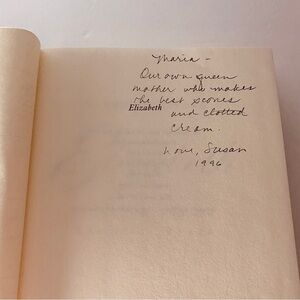 Maria -
Our own queen
mother who makes
the best scones
Elizabeth
and clotted
cream.
Love, Susan
1996